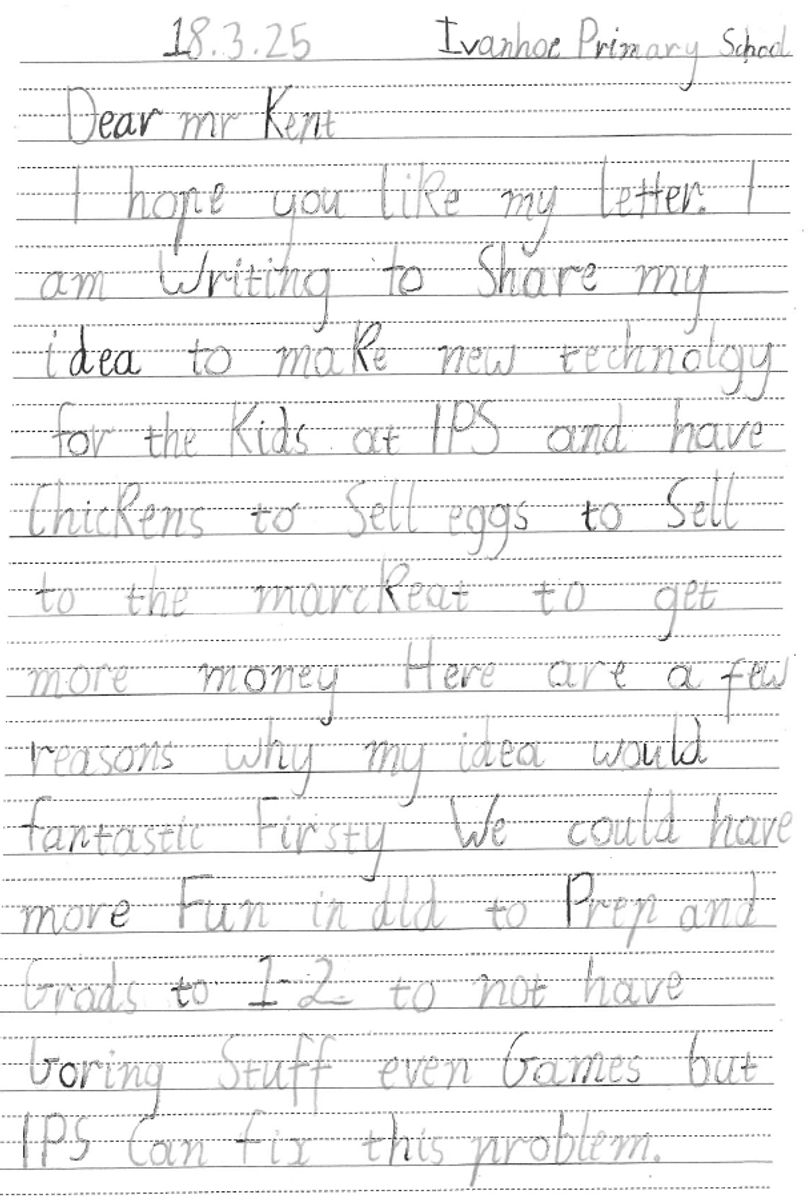 18.3.25 Ivanhoe Primary School
Dear mr Kent
I hope you like my letter. I
am Writing to Share my
idea to make new technolgy
for the Kids at IPS and have
Chickens to Sell eggs to Sell
to the marckeat to get
more money Here are a few
reasons why my idea would
fantastic Firsty We could have
more Fun in dld to Prep and
Grads to 1-2 to not have
boring Stuff even Games but
IPS Can fix this problem.